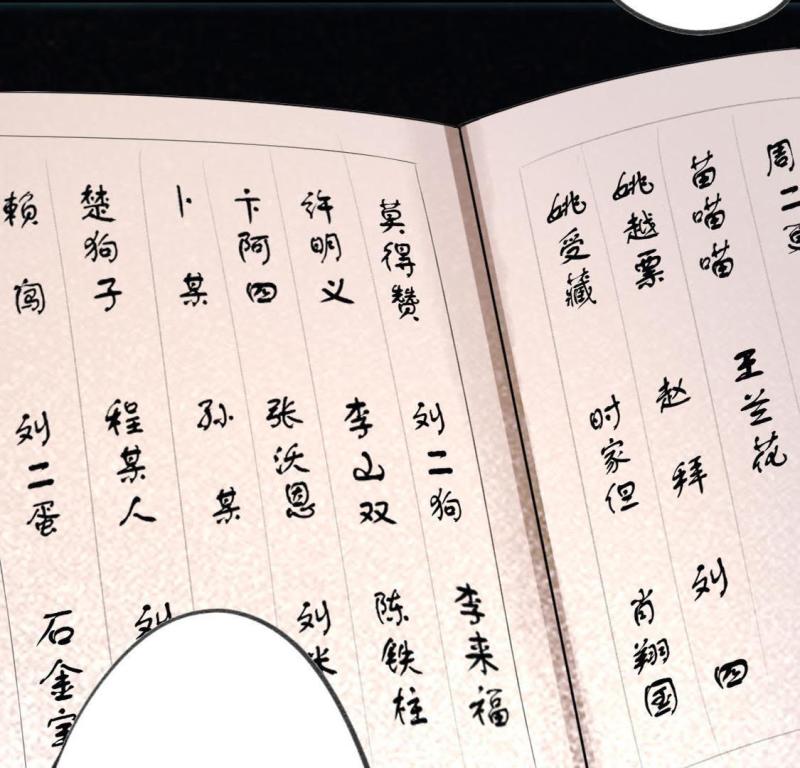 周二
王兰花
苗喵喵
赵拜
刘四
姚越票
时家但
肖翔国
姚受藏
莫得赞
刘二狗
李来福
许明义
李山双
陈铁柱
卞阿四
张沃恩
刘
卜某
孙某
楚狗子
程某人
刘
赖闯
刘二蛋
石金宝